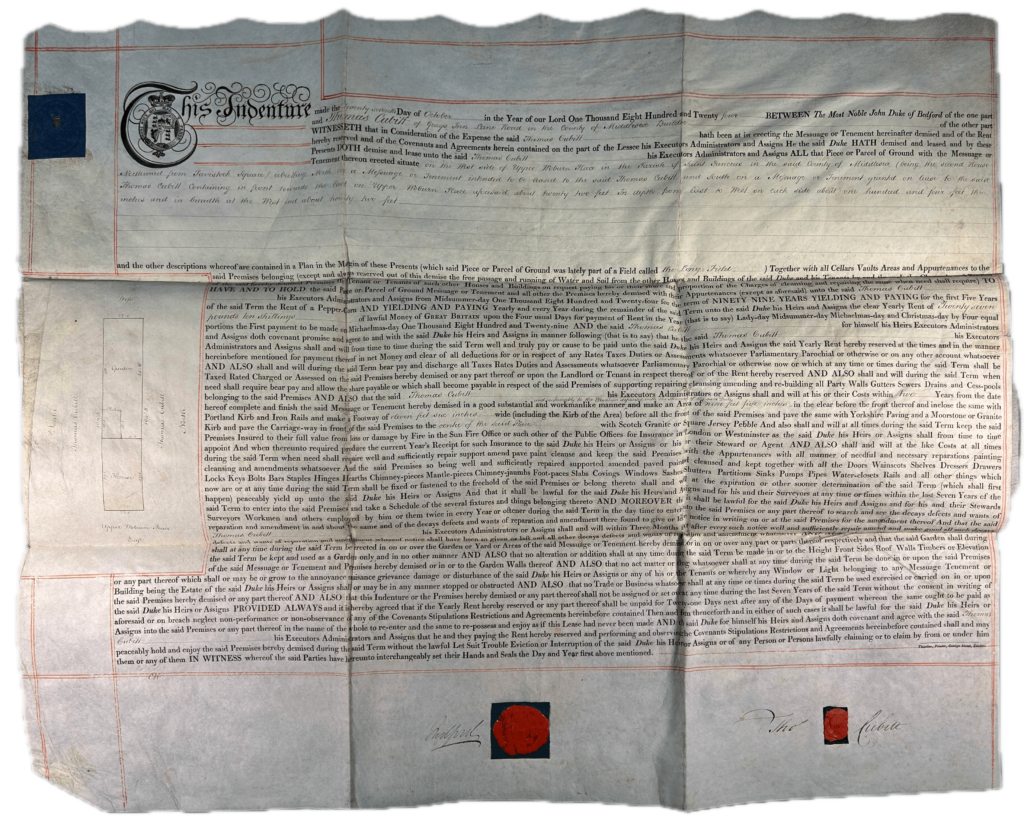 This Indenture made the Twenty seventh Day of October in the Year of our Lord One Thousand Eight Hundred and Twenty four BETWEEN The Most Noble John Duke of Bedford of the one part
and Thomas Cubitt of Grays Inn Lane Road in the County of Middlesex Builder of the other part
WITNESSETH that in Consideration of the Expense the said Thomas Cubitt hath been at in erecting the Messuage or Tenement hereinafter demised and of the Rent
hereby reserved and of the Covenants and Agreements herein contained on the part of the Lessee his Executors Administrators and Assigns He the said Duke HATH demised and leased and by these
Presents DOTH demise and lease unto the said Thomas Cubitt his Executors Administrators and Assigns ALL that Piece or Parcel of Ground with the Messuage or
Tenement thereon erected situate on the West side of Upper Woburn Place in the Parish of Saint Pancras in the said County of Middlesex (being the second House
Northward from Tavistock Square) abutting North on a Messuage or Tenement intended to be leased to the said Thomas Cubitt and South on a Messuage or Tenement granted on lease to the said
Thomas Cubitt Containing in front towards the East on Upper Woburn Place aforesaid about twenty two feet In depth from East to West on each side about one hundred and four feet six
inches and in breadth at the West end about twenty two feet
and the other descriptions whereof are contained in a Plan in the Margin of these Presents (which said Piece or Parcel of Ground was lately part of a Field called the Long Field ) Together with all Cellars Vaults Areas and Appurtenances to the
said Premises belonging (except and always reserved out of this demise the free passage and running of Water and Soil from the other Houses and Buildings of the said Duke and his Tenants
HAVE AND TO HOLD the said Piece or Parcel of Ground Messuage or Tenement and all other the Premises with the Appurtenances (except as aforesaid) unto the said Thomas Cubitt
his Executors Administrators and Assigns from Midsummer-day One Thousand Eight Hundred and Twenty-four for the term of NINETY NINE YEARS YIELDING AND PAYING for the first Five Years
of the said Term the Rent of a Peppercorn AND YIELDING AND PAYING Yearly and every Year during the remainder of the said Term unto the said Duke his Heirs and Assigns the clear Yearly Rent of Twenty seven
pounds ten shillings of lawful Money of GREAT BRITAIN upon the Four usual Days for payment of Rent in the Year (that is to say) Lady-day Midsummer-day Michaelmas-day and Christmas-day by Four equal
portions the First payment to be made on Michaelmas-day One Thousand Eight Hundred and Twenty-nine AND the said Thomas Cubitt for himself his Heirs Executors Administrators
and Assigns doth covenant promise and agree to and with the said Duke his Heirs and Assigns in manner following (that is to say) that he the said Thomas Cubitt his Executors
Administrators and Assigns shall and will from time to time during the said Term well and truly pay or cause to be paid unto the said Duke his Heirs and Assigns the said Yearly Rent hereby reserved at the times and in the manner
hereinbefore mentioned for payment thereof in net Money and clear of all deductions for or in respect of any Rates Taxes Duties or Assessments whatsoever Parliamentary Parochial or otherwise or on any other account whatsoever
AND ALSO shall and will during the said Term bear pay and discharge all Taxes Rates Duties and Assessments whatsoever Parliamentary Parochial or otherwise now or which at any time or times during the said Term shall be
Taxed Rated Charged or Assessed on the said Premises hereby demised or any part thereof or upon the Landlord or Tenant in respect thereof or of the Rent hereby reserved AND ALSO shall and will during the said Term when
need shall require bear pay and allow the share payable or which shall become payable in respect of the said Premises of supporting repairing cleansing amending and re-building all Party Walls Gutters Sewers Drains and Cess-pools
belonging to the said Premises AND ALSO that the said Thomas Cubitt his Executors Administrators and Assigns shall and will at his or their Costs within Two Years from the date
hereof complete and finish the said Messuage or Tenement hereby demised in a good substantial and workmanlike manner and make an Area in the clear before the front thereof and inclose the same with
Portland Kirb and Iron Rails and make a Footway of eleven feet one inches wide (including the Kirb of the Area) before all the front of the said Premises and pave the same with Yorkshire Paving and a Moorstone or Granite
Kirb and pave the Carriage-way in front of the said Premises to the centre of the said Place with Scotch Granite or Square Jersey Pebble And also shall and will at all times during the said Term keep the said
Premises Insured to their full value from loss or damage by Fire in the Sun Fire Office or such other of the Public Offices for Insurance in London or Westminster as the said Duke his Heirs or Assigns shall from time to time
appoint And when thereunto required produce the current Year's Receipt for such Insurance to the said Duke his Heirs or Assigns or his or their Steward or Agent AND ALSO shall and will at the like Costs at all times
during the said Term when need shall require well and sufficiently repair support amend pave paint cleanse and keep the said Premises with the Appurtenances with all manner of needful and necessary reparations painting
cleansing and amendments whatsoever And the said Premises so being well and sufficiently repaired supported amended paved painted cleansed and kept together with all the Doors Wainscots Shelves Dressers Drawers
Locks Keys Bolts Bars Staples Hinges Hearths Chimney-pieces Mantle-pieces Chimney-jaumbs Foot-paces Slabs Covings Windows Sashes Shutters Partitions Sinks Pumps Pipes Water-closets Rails and all other things which
now are or at any time during the said Term shall be fixed or fastened to the freehold of the said Premises or belong thereto shall and will at the expiration or other sooner determination of the said Term (which shall first
happen) peaceably yield up unto the said Duke his Heirs or Assigns And that it shall be lawful for the said Duke his Heirs and Assigns and for his and their Surveyors at any time or times within the last Seven Years of the
said Term to enter into the said Premises and take a Schedule of the several fixtures and things belonging thereto AND MOREOVER that it shall be lawful for the said Duke his Heirs and Assigns and for his and their Stewards
Surveyors Workmen and others employed by him or them twice in every Year or oftener during the said Term in the day time to enter into the said Premises or any part thereof to search and see the decays defects and wants of
reparation and amendment in and about the same and of the decays defects and wants of reparation and amendment there found to give or leave Notice in writing on or at the said Premises for the amendment thereof And that the said
Thomas Cubitt his Executors Administrators or Assigns shall and will within Three Months after every such notice well and sufficiently repair amend and make good
shall at any time during the said Term be erected in on or over the Garden or Yard or Areas of the Messuage or Tenement hereby demised in on or over any part or parts thereof respectively and that the said Garden shall during
the said Term be kept and used as a Garden only and in no other manner AND ALSO that no alteration or addition shall at any time during the said Term be made in or to the Height Front Sides Roof Walls Timbers or Elevation
of the said Messuage or Tenement and Premises hereby demised or in or to the Garden Walls thereof AND ALSO that no act matter or thing whatsoever shall at any time during the said Term be done in or upon the said Premises
or any part thereof which shall or may be or grow to the annoyance nuisance grievance damage or disturbance of the said Duke his Heirs or Assigns or any of his or their Tenants or whereby any Window or Light belonging to any Messuage Tenement or
Building being the Estate of the said Duke his Heirs or Assigns shall or may be in any manner stopped or obstructed AND ALSO that no Trade or Business whatsoever shall at any time or times during the said Term be used exercised or carried on in or upon
the said Premises hereby demised or any part thereof AND ALSO that this Indenture or the Premises hereby demised or any part thereof shall not be assigned or set over at any time during the last Seven Years of the said Term without the consent in writing of
the said Duke his Heirs or Assigns PROVIDED ALWAYS and it is hereby agreed that if the Yearly Rent hereby reserved or any part thereof shall be unpaid for Twenty one Days next after any of the Days of payment whereon the same ought to be paid as
aforesaid or on breach neglect non-performance or non-observance of any of the Covenants Stipulations Restrictions and Agreements hereinbefore contained Then and from thenceforth and in either of such cases it shall be lawful for the said Duke his Heirs or
Assigns into the said Premises or any part thereof in the name of the whole to re-enter and the same to re-possess and enjoy as if this Lease had never been made AND the said Duke for himself his Heirs and Assigns doth covenant and agree with the said Thomas
Cubitt his Executors Administrators and Assigns that he and they paying the Rent hereby reserved and performing and observing the Covenants Stipulations Restrictions and Agreements hereinbefore contained shall and may
peaceably hold and enjoy the said Premises hereby demised during the said Term without the lawful Let Suit Trouble Eviction or Interruption of the said Duke his Heirs or Assigns or of any Person or Persons lawfully claiming or to claim by from or under him
them or any of them IN WITNESS whereof the said Parties have hereunto interchangeably set their Hands and Seals the Day and Year first above mentioned.
Garden
Thomas Cubitt
North
Upper Woburn Place
East
Bedford
Tho Cubitt